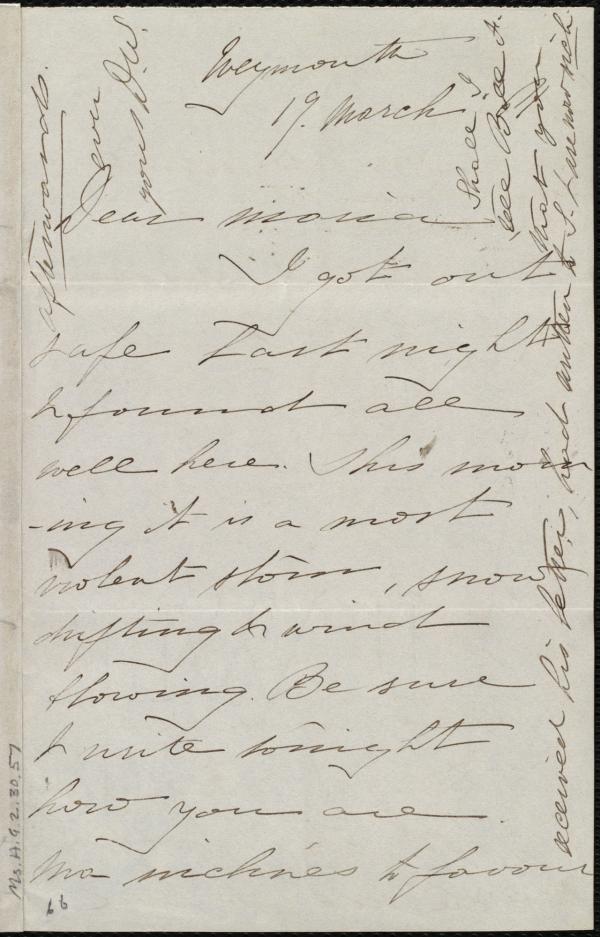 Weymouth
19. March
Dear Maria
I got out
safe last night
& found all
well here. This morn
-ing it is a most
violent storm, snow
drifting & wind
blowing. Be sure
& write tonight
how you are.
Ma inclines to favour
afterwards.
ever
yours D.W.
Shall I
see
that you
received his letter, had written to S. &
Ms. A. 9. 2. 30. 57
66